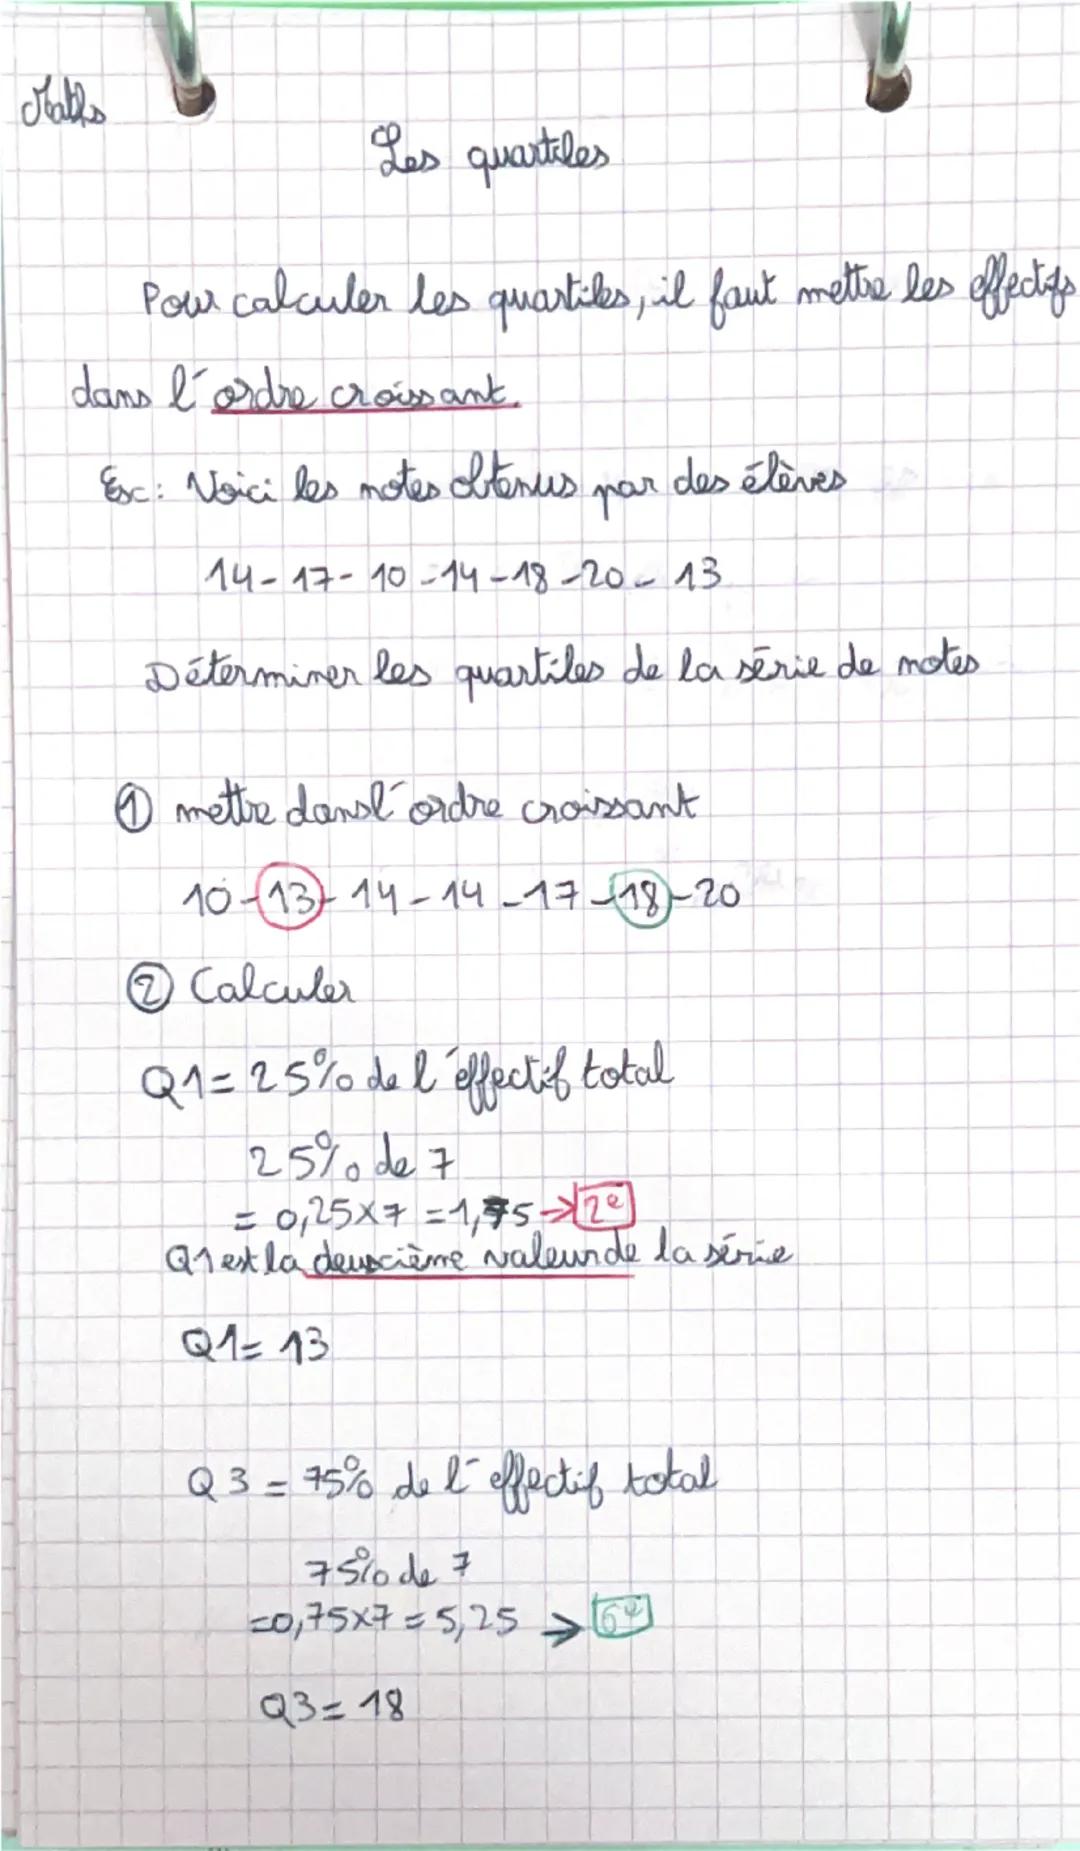 Maths
Les quartiles
Pour calculer les quartiles, il faut mettre les effectifs
dans l'ordre croissant.
Ex: Voici les notes obtenus par des élèves
14-17-10-14-18-20-13
Déterminer les quartiles de la série de notes
① mettre dans l'ordre croissant
10-13-14-14-17-18-20
② Calculer
Q1=25% de l'éffectif total
25% de 7
= 0,25x7 = 1,75 → 2e
Q1 est la deuxième valeur de la série
Q1= 13
Q3 = 75% de l'effectif total
75% de 7
=0,75x7 = 5,25 → 6e
Q3= 18